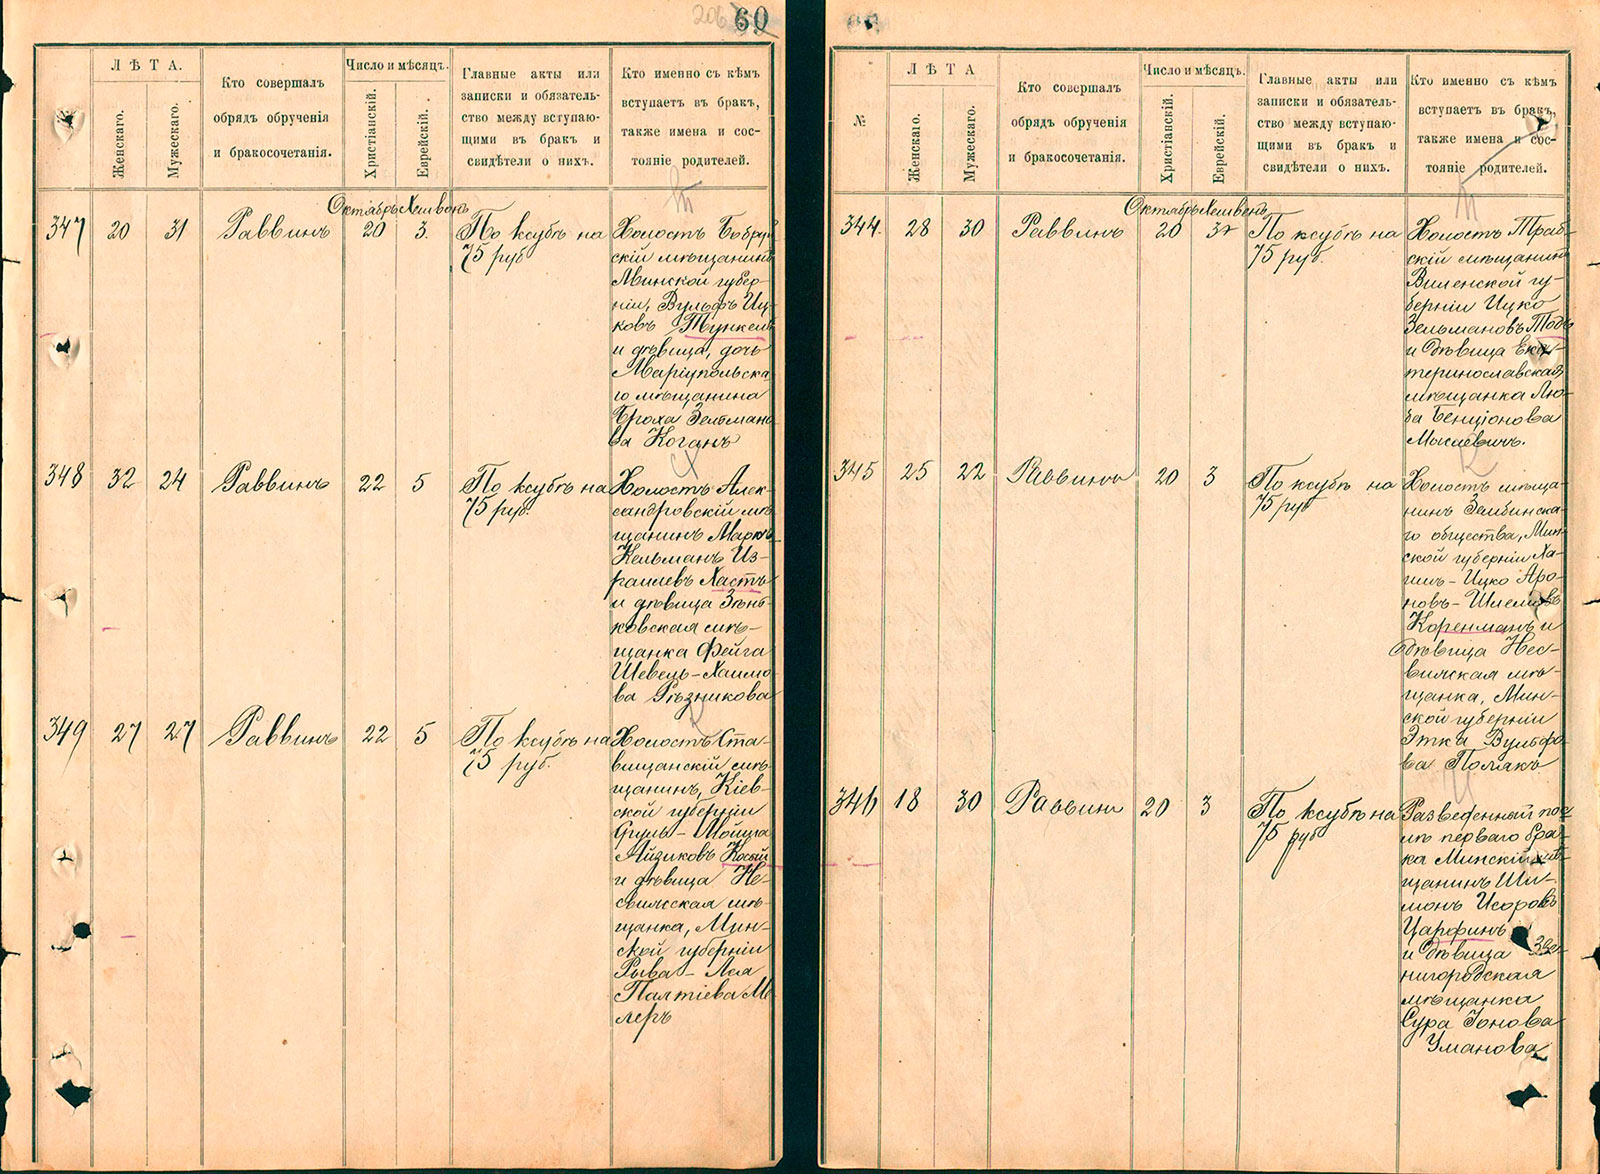 206 60
ЛѢТА.
Женскаго.
Мужескаго.
Кто совершалъ
обрядъ обрученія
и бракосочетанія.
Число и мѣсяцъ.
Христіанскій.
Еврейскій.
Главные акты или
записки и обязатель-
ство между вступаю-
щими въ бракъ и
свидѣтели о нихъ.
Кто именно съ кѣмъ
вступаетъ въ бракъ,
также имена и сос-
тояніе родителей.
Октябрь Хешвонъ
347 20 31 Раввинъ 20 3 По ксубѣ на
75 руб
Холостъ Бобруй
скій мѣщанинъ
Минской губер-
ніи, Вульфъ Иц-
ковъ Тункель
и дѣвица, дочь
Маріупольска
го мѣщанина
Броха Зельмано
ва Коганъ
348 32 24 Раввинъ 22 5 По ксубѣ на
75 руб.
Холостъ Алек-
сандровскій мѣ
щанинъ Маркъ
Кельманъ Из-
раилевъ Хастъ
и дѣвица Зѣнь-
ковская мѣ-
щанка Фейга
Шевель-Хаимо
ва Рѣзникова
349 27 27 Раввинъ 22 5 По ксубѣ на
75 руб.
Холостъ Ста-
вищанскій мѣ-
щанинъ, Кіев-
ской губерніи
Сруль-
Айзиковъ Косый
и дѣвица Не-
свижская мѣ-
щанка, Мин-
ской губерніи
Рыва-Лея
Палтіева М
леръ
№
ЛѢТА
Женскаго.
Мужескаго.
Кто совершалъ
обрядъ обрученія
и бракосочетанія.
Число и мѣсяцъ.
Христіанскій.
Еврейскій.
Главные акты или
записки и обязатель-
ство между вступаю-
щими въ бракъ и
свидѣтели о нихъ.
Кто именно съ кѣмъ
вступаетъ въ бракъ,
также имена и сос-
тояніе родителей.
Октябрь Хешвенъ
344 28 30 Раввинъ 20 3 По ксубѣ на
75 руб.
Холостъ Траб-
скій мѣщанинъ
Виленской гу-
берніи Ицко
Зельмановъ Тодъ
и дѣвица Ека-
теринославская
мѣщанка Лю-
ба Бенціонова
Мыслевичъ.
345 25 22 Раввинъ 20 3 По ксубѣ на
75 руб
Холостъ мѣща-
нинъ Зембинска-
го общества, Мин-
ской губерніи Ха-
имъ-Ицко Аро-
новъ-Шлемовъ
Коренманъ и
дѣвица Нес-
вижская мѣ-
щанка, Мин-
ской губерніи
Этка Вульфо-
ва Полякъ
346 18 30 Раввинъ 20 3 По ксубѣ на
75 руб
Разведенный пос-
лѣ перваго бра-
ка Минскій мѣ-
щанинъ Ши-
монъ Исоровъ
Царфинъ
и дѣвица Зве-
нигородская
мѣщанка
Сура Іонова
Уманова